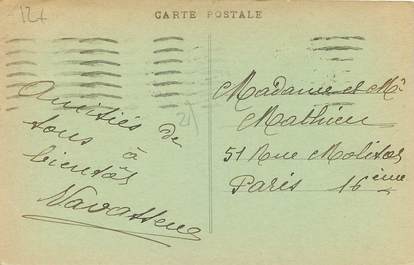 12x
CARTE POSTALE
Amitiés de
tous à
bientôt
21
Madame et Mr
Mathieu
51 Rue Molitor
Paris 16ème